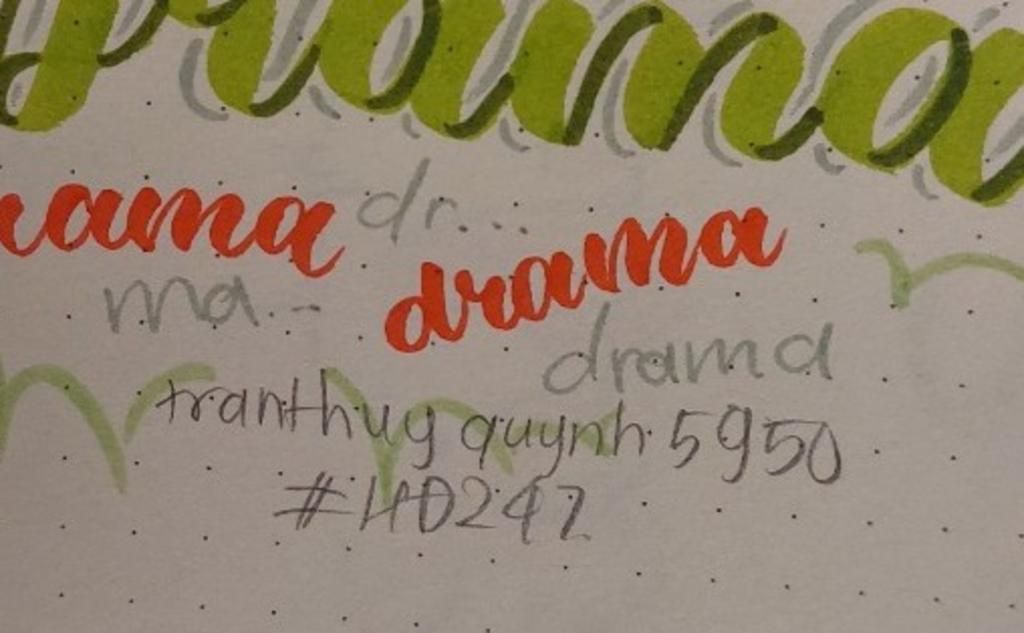 drama
rama dr...
drama
ma..-
drama
tranthuyquynh5950
#HD247